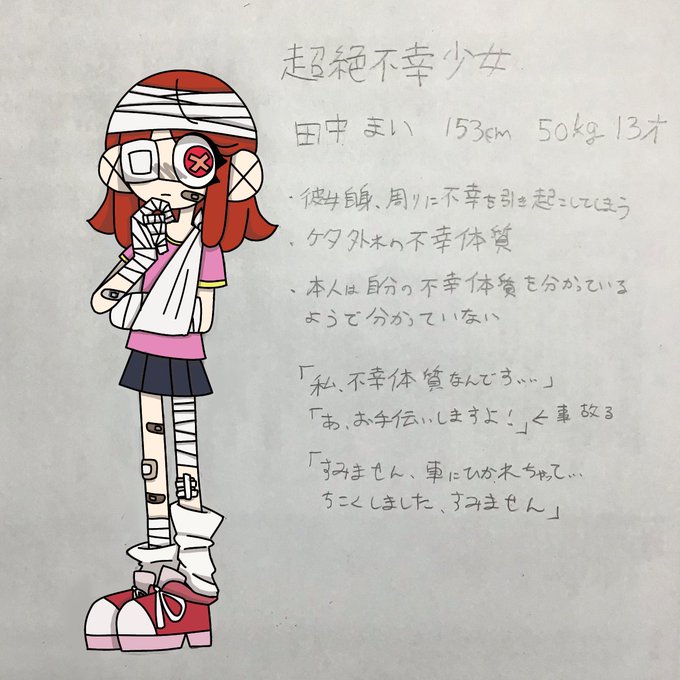 超絶不幸少女
田中 まい 153cm 50kg 13才
・彼女自身、周りに不幸を引き起こしてしまう
・ケタ外れの不幸体質
・本人は自分の不幸体質を分かっている
ようで分かっていない
「私、不幸体質なんです…」
「あ、お手伝いしますよ!」← 事故る
「すみません、車にひかれちゃって…
ちこくしました、すみません」